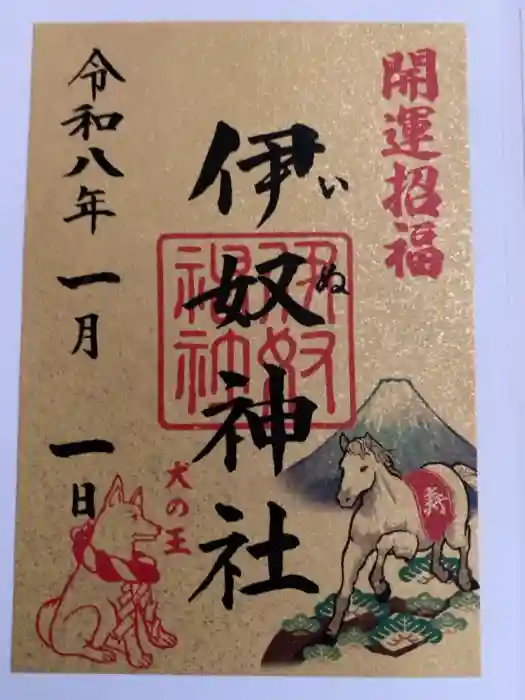 開運招福
伊奴神社
いぬ
伊奴
神社
令和八年一月一日
犬の王
寿